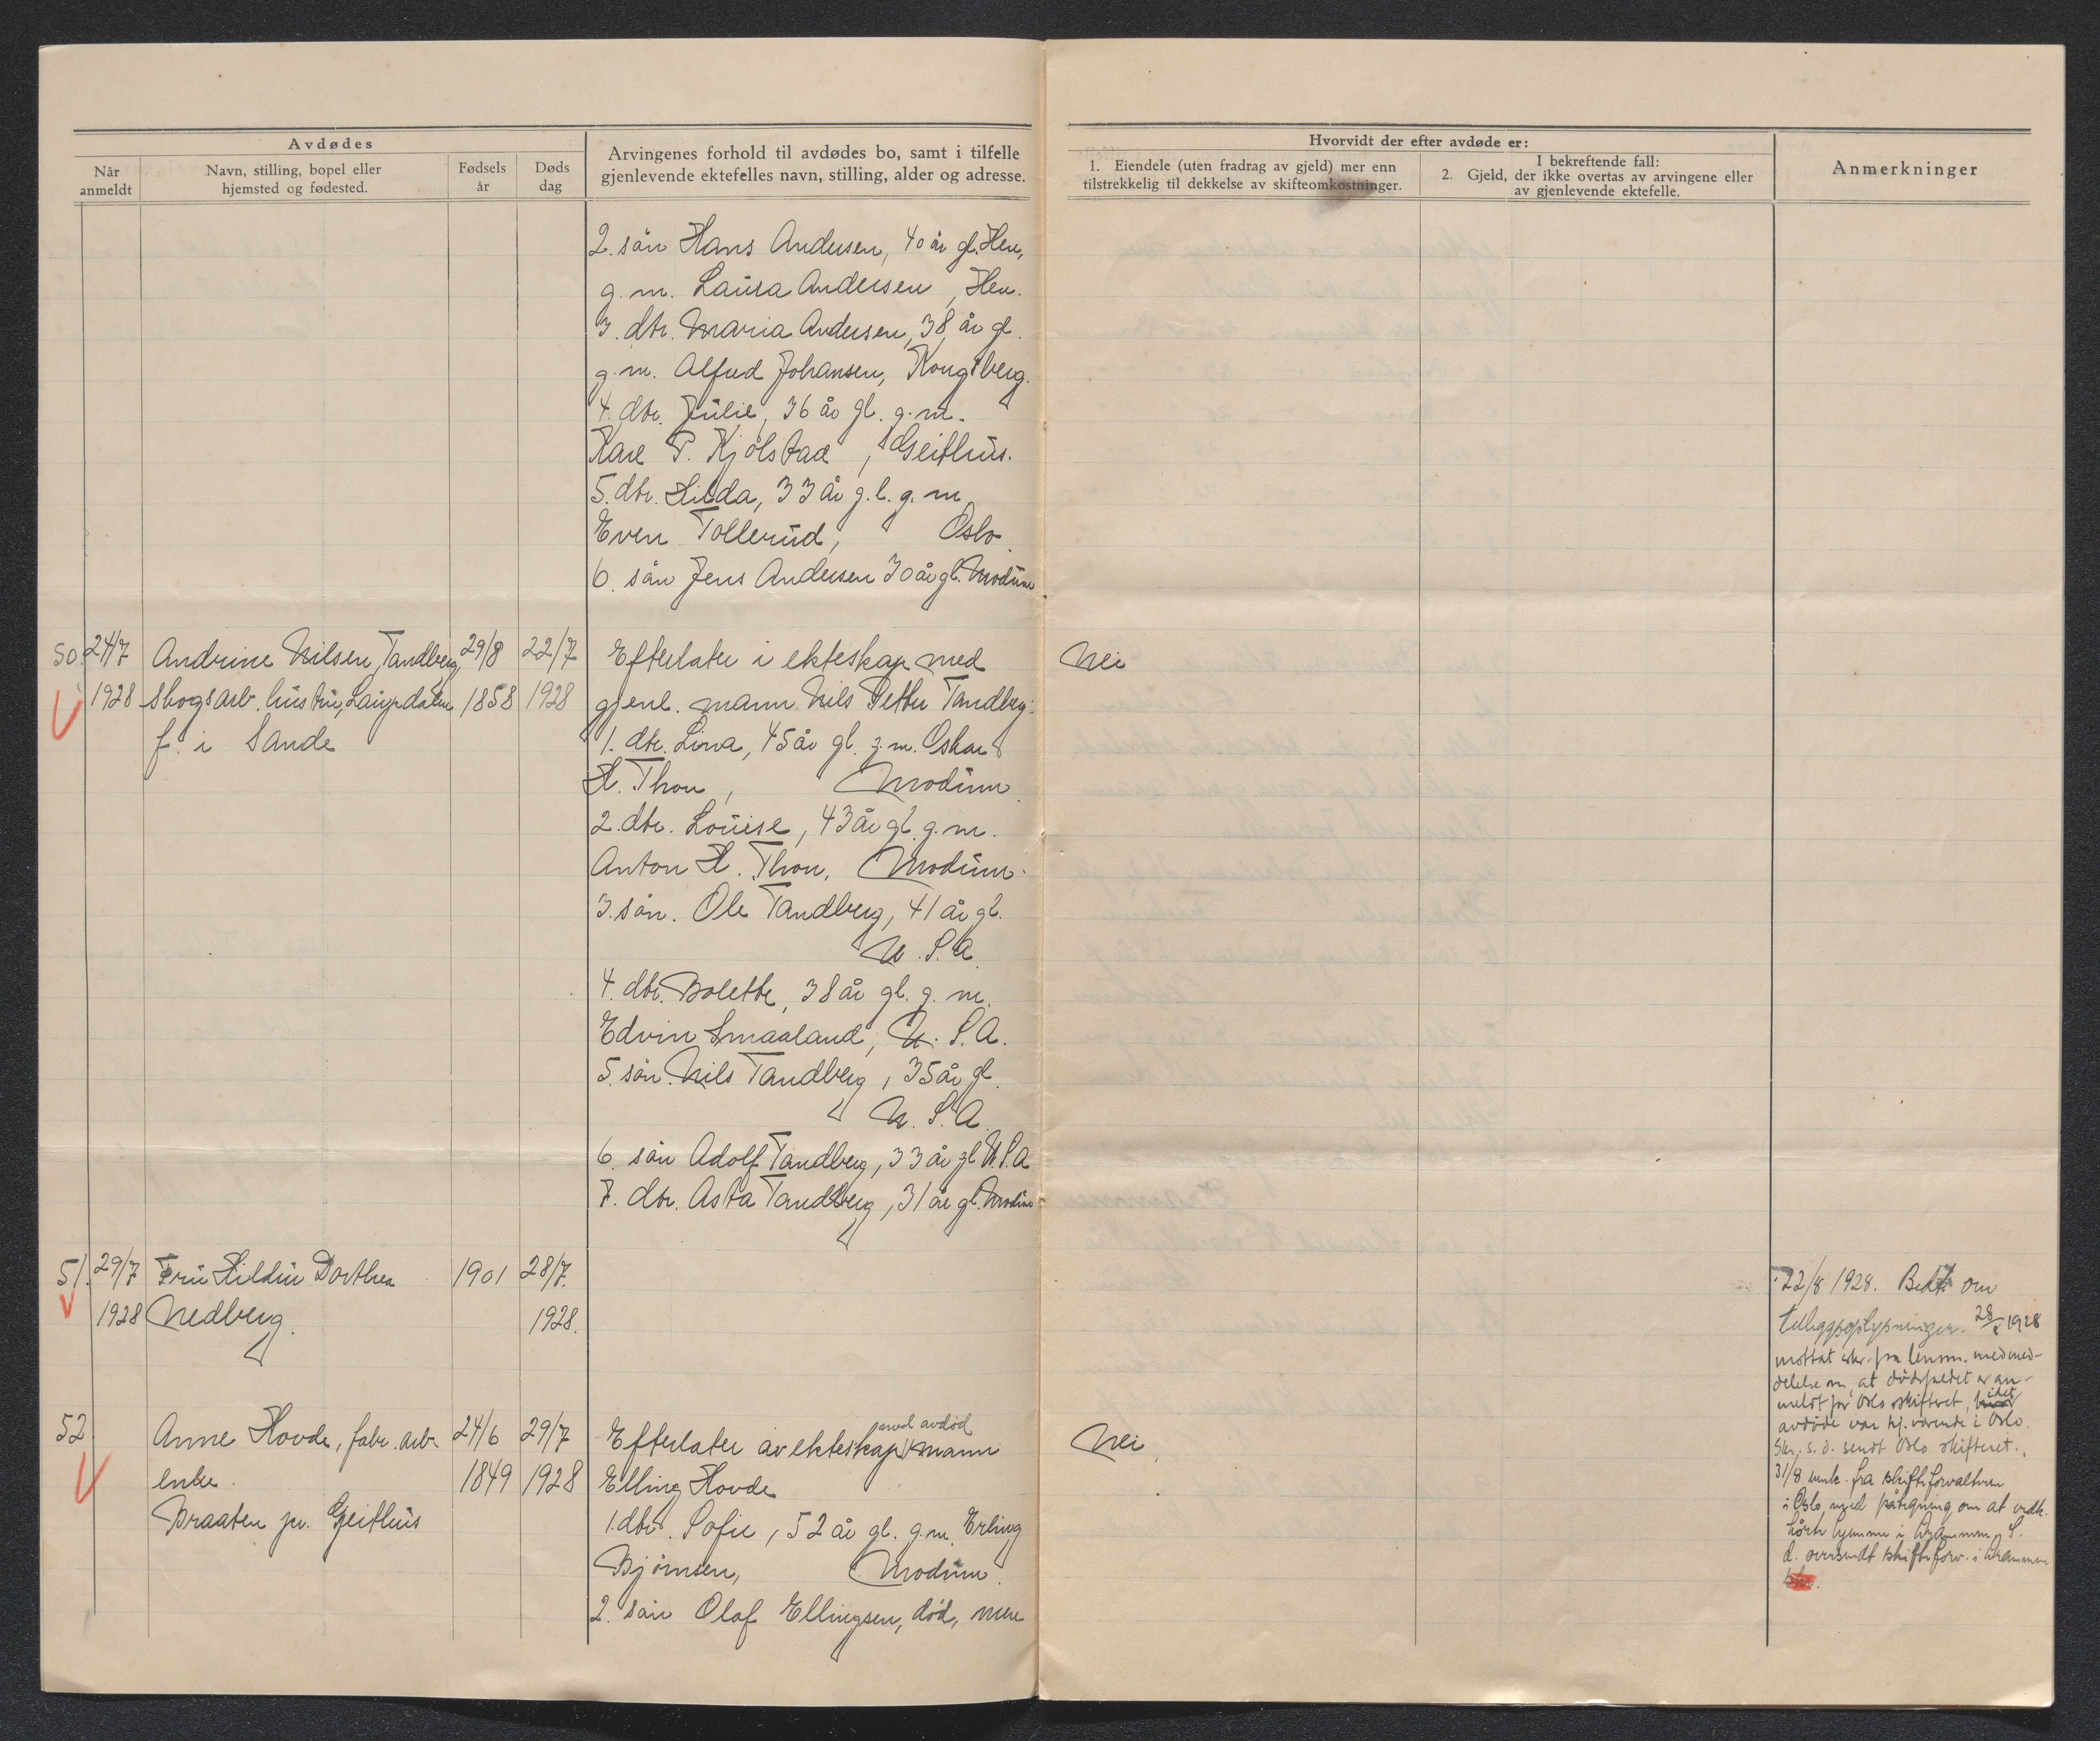 Avdødes
Når anmeldt
Navn, stilling, bopel eller hjemsted og fødested.
Fødsels år
Døds dag
Arvingenes forhold til avdødes bo, samt i tilfelle
gjenlevende ektefelles navn, stilling, alder og adresse.
Hvorvidt der efter avdøde er:
1. Eiendele (uten fradrag av gjeld) mer enn
tilstrekkelig til dekkelse av skifteomkostninger.
I bekreftende fall:
2. Gjeld, der ikke overtas av arvingene eller
av gjenlevende ektefelle.
Anmerkninger
2. sån Hans Andersen, 40 år gl. Hen,
g. m. Laura Andersen, Hen.
3. dtr. Maria Andersen, 38 år gl.
g. m. Alfred Johansen, Kongsberg.
4. dtr. Julie, 36 år gl. g. m.
Karl P. Kjølstad, Geithus.
5. dtr. Hilda, 33 år g.l. g. m.
Even Tollerud, Oslo.
6. sån Jens Andersen 30 år gl. Modum
50. 24/7 Andrine Nilsen Tandberg, 29/8 22/7 Efterlater i ekteskap med Nei
1928 skogsarb. hustru, 1858 1928 gjenl. mann Nils Petter Tandberg:
f. i Sande
1. dtr. Lina, 45 år gl. g. m. Oskar
H. Thon, Modum.
2. dtr. Louise, 43 år gl. g. m.
Anton H. Thon, Modum.
3. sån. Ole Tandberg, 41 år gl.
U. S. A.
4. dtr. Bolette, 38 år gl. g. m.
Edvin Smaaland, U. S. A.
5. sån. Nils Tandberg, 35 år gl.
U. S. A.
6. sån Adolf Tandberg, 33 år gl. U.S.A
7. dtr. Asta Tandberg, 31 år gl. Modum
51. 29/7 Fru Hildur Dorthea 1901 28/7.
1928 Nedberg. 1928.
22/8 1928. Bedt om
tilleggsoplysninger. 28/8 1928
mottat skr. fra lensm. med med-
delelse om, at dødsfaldet er an-
meldt for Oslo skifteret, idet
avdøde var hj. vørende i Oslo.
Skr. s. d. sendt Oslo skifteret.
31/8 fra skifteforvalteren
i Oslo med påtegning om at vedk.
hørte hjemme i Drammen. S.
d. oversendt skifteforv. i Drammen
52 Anne Hovde, fabr. arb. 24/6 29/7 Efterlater av ekteskap med avdød mann Nei
enke. 1849 1928 Elling Hovde
Braaten pr. Geithus
1. dtr. Sofie, 52 år gl. g. m. Erling
Bjørnsen, Modum.
2. sån Olaf Ellingsen, død, men